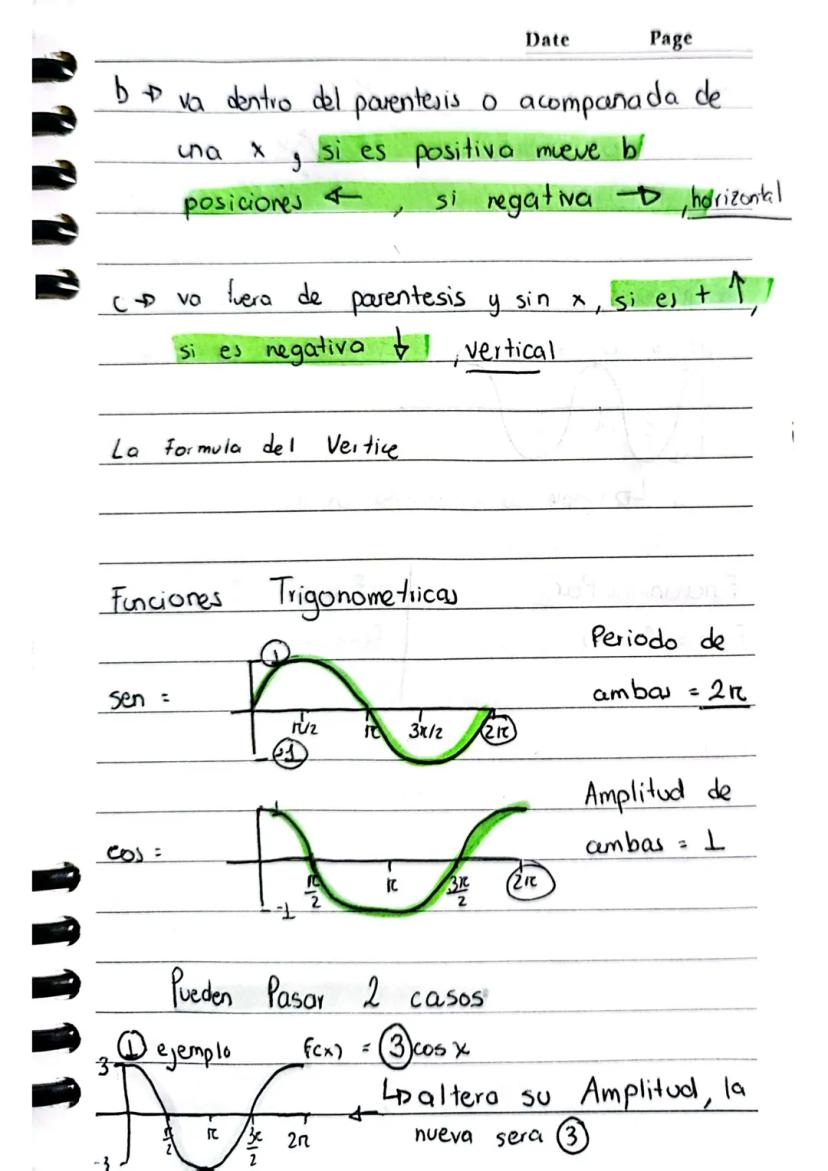 Date Page
b → va dentro del parentesis o acompanada de
una x , si es positiva mueve b
posiciones ← , si negativa → , horizontal
c → va fuera de parentesis y sin x, si es + ↑,
si es negativa ↓ , vertical
La formula del Vertice
Funciones Trigonometricas
Periodo de
ambas = 2π
sen =
1
π/2 π 3π/2 2π
-1
Amplitud de
ambas = 1
cos =
1
π/2 π 3π/2 2π
-1
Pueden Pasar 2 casos
① ejemplo f(x) = ③cos x
3
↳ altera su Amplitud, la
nueva sera ③
π/2 π 3π/2 2π
-3